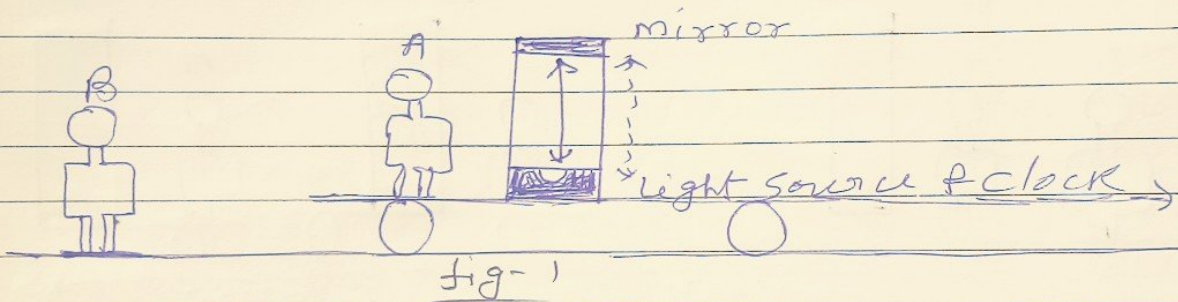 mirror
A
B
Light source & clock
fig-1